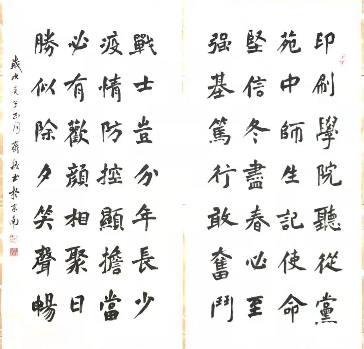 印刷學院聽從黨
苑中師生記使命
堅信冬盡春必至
强基篤行敢奮鬥
戰士豈分年長少
疫情防控顯擔當
必有歡顏相聚日
勝似除夕笑聲暢
歲次庚子正月